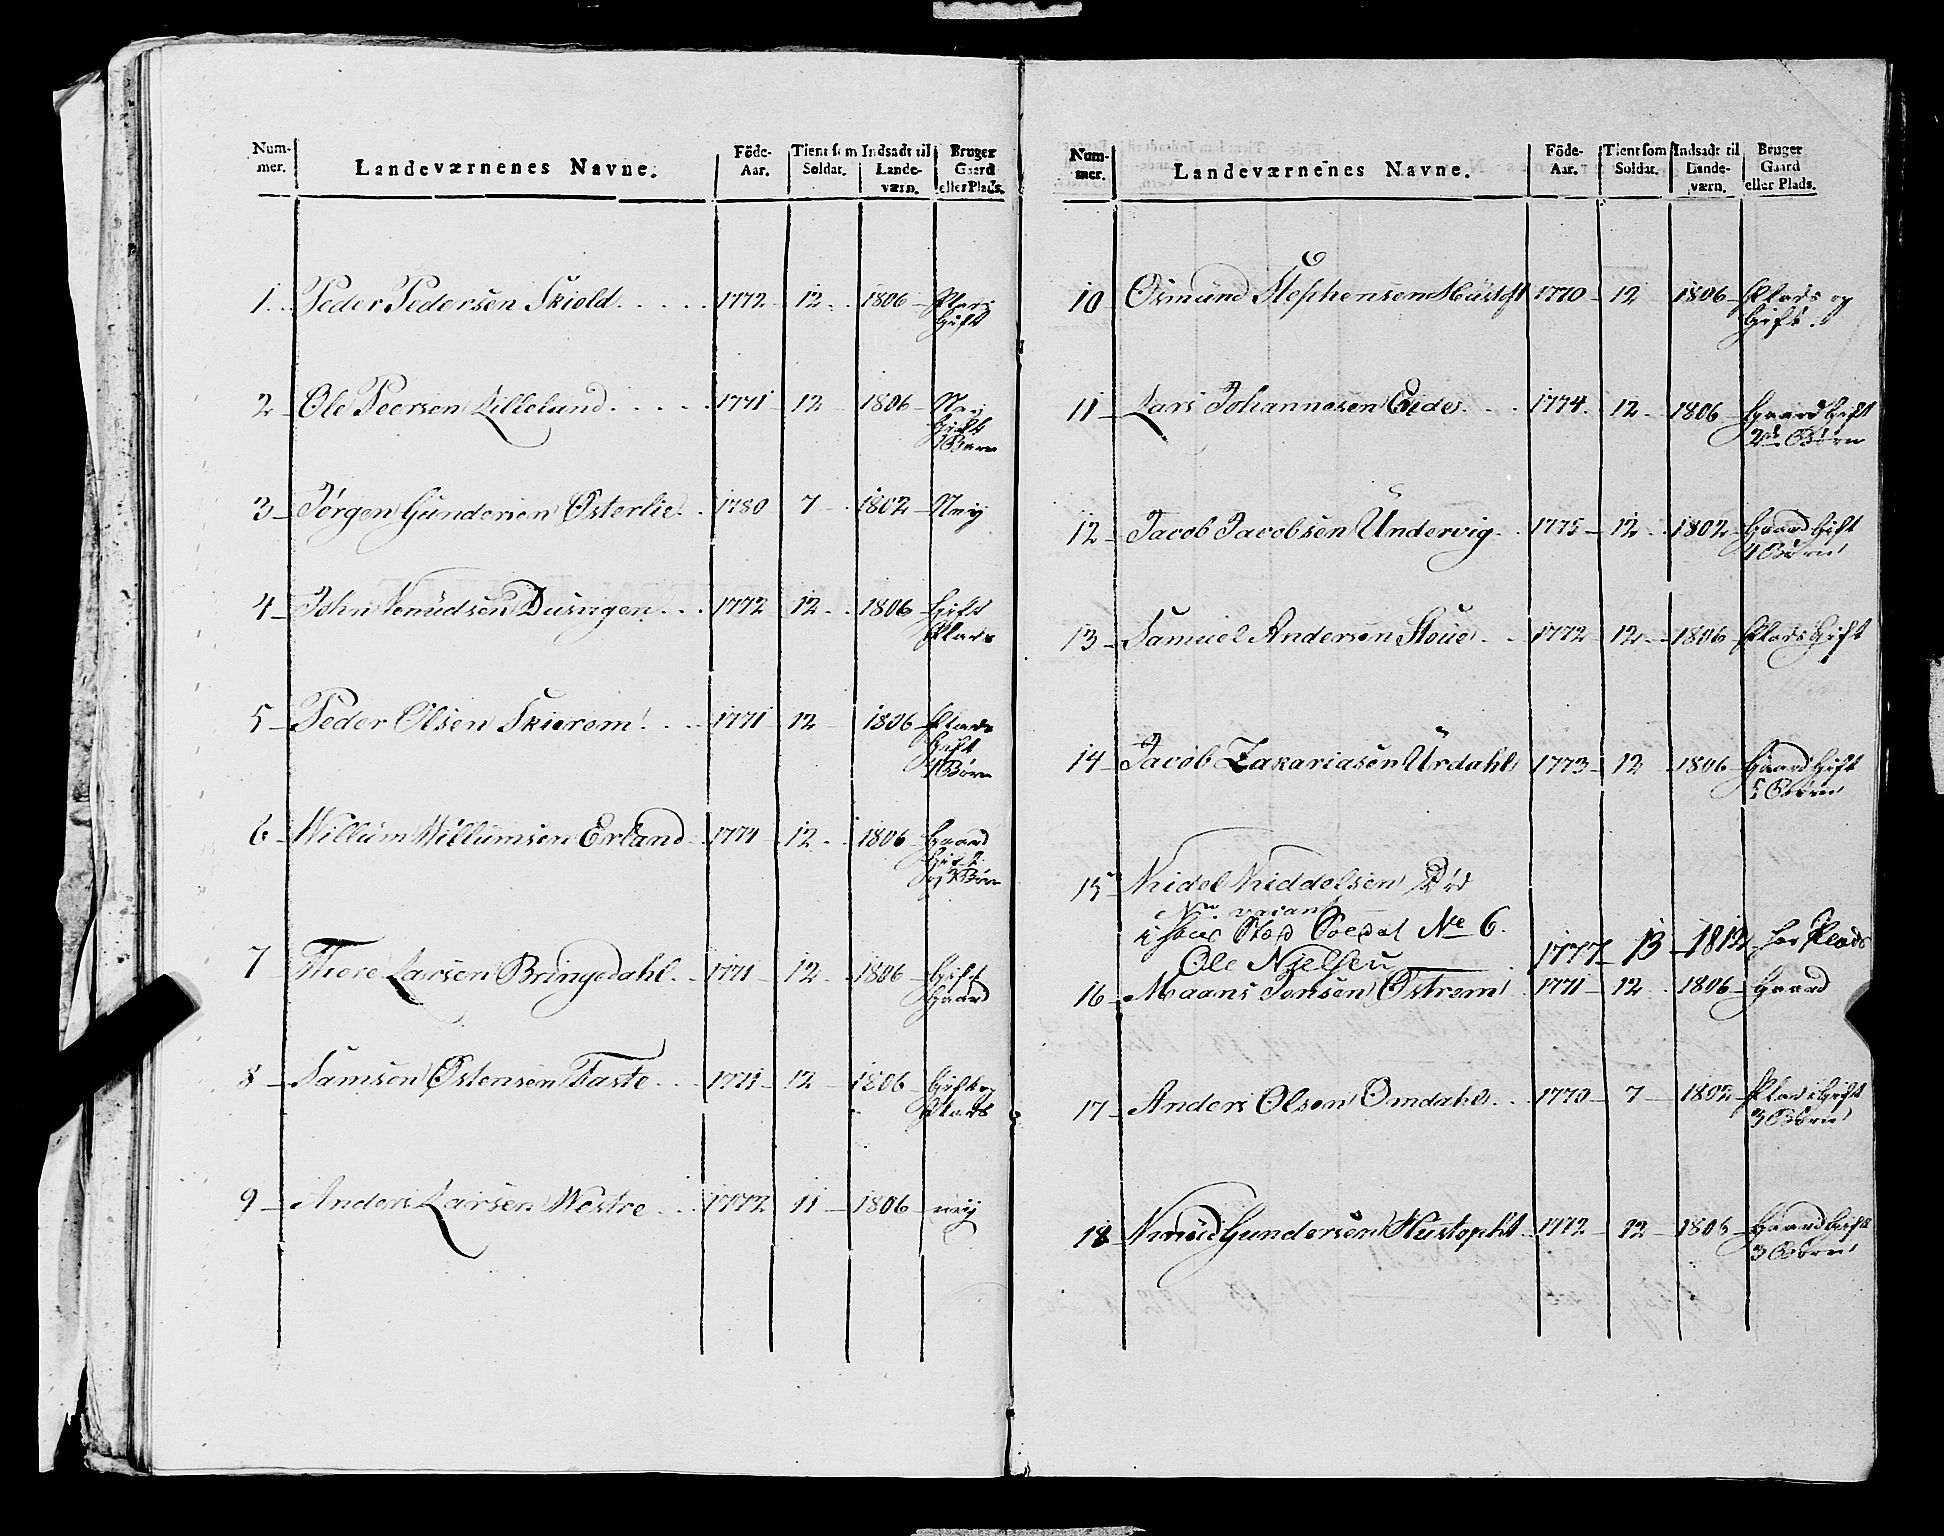 Num-mer. Landeværnenes Navne. Föde-Aar. Tient som Soldat. Indsadt til Lande-værn. Bruger Gaard eller Plads.
1. Peder Pedersen Skiold 1772 12 1806 Plads
Gift
2 Ole Peersen Lillelund 1771 12 1806 Ney
Gift
1 Barn
3 Jørgen Gundersen Østerlie 1780 7 1802 Ney
4 John Knudsen Dusngen 1772 12 1806 Gift
Plads
5 Peder Olsen Skierem 1771 12 1806 Plads
Gift
4 Børn
6 Willum Willumsen Erland 1771 12 1806 Gaard
Gift
og 3 Børn
7 Thore Larsen Bringedahl 1771 12 1806 Gift
Gaard
8 Samson Østensen Faste 1771 12 1806 Gift og
Plads
9 Anders Larsen Westre 1772 11 1806 ney
Num-mer. Landeværnenes Navne. Föde-Aar. Tient som Soldat. Indsadt til Lande-værn. Bruger Gaard eller Plads.
10 Osmund Stephensen Hustoft 1770 12 1806 Plads og
Gift.
11 Lars Johannesen Eide 1774 12 1806 Gaard Gift
2de Børn
12 Jacob Jacobsen Undervig 1775 12 1802 Gaard Gift
4 Børn
13 Samuel Andersen Stoue 1772 12 1806 Plads Gift
14 Jacob Zakariasen Urdahl 1773 12 1806 Gaard Gift
5 Børn
15 Kidel Kiddelsen Død
No vacant
i hans Sted Soldat No 6.
Ole Nielsen 1777 13 1812 har Plads
16 Maans Jonsen Østrem 1771 12 1806 Gaard
17 Anders Olsen Omdahl 1770 7 1802 Plads Gift
3 Børn
18 Knud Gundersen Hustopht 1772 12 1806 Gaard Gift
3 Børn